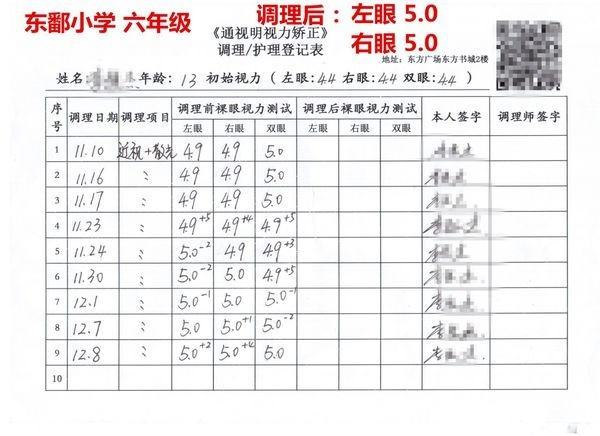 东鄱小学 六年级
调理后：左眼 5.0
右眼 5.0
《通视明视力矫正》
调理/护理登记表
地址：东方广场东方书城2楼
姓名 年龄：13 初始视力（左眼：4.4 右眼：4.4 双眼：4.4）
序号 调理日期 调理项目 调理前裸眼视力测试 调理后裸眼视力测试 本人签字 调理师签字
左眼 右眼 双眼 左眼 右眼 双眼
1 11.10 近视+散光 4.9 4.9 5.0
2 11.16 〃 4.9 4.9 5.0
3 11.17 〃 4.9 4.9 5.0
4 11.23 〃 4.9+5 4.9+4 4.9+5
5 11.24 〃 5.0-2 4.9 4.9+3
6 11.30 〃 5.0-2 5.0 4.9+5
7 12.1 〃 5.0-1 5.0 5.0-1
8 12.7 〃 5.0 5.0+1 5.0-2
9 12.8 〃 5.0+2 5.0+4 5.0
10